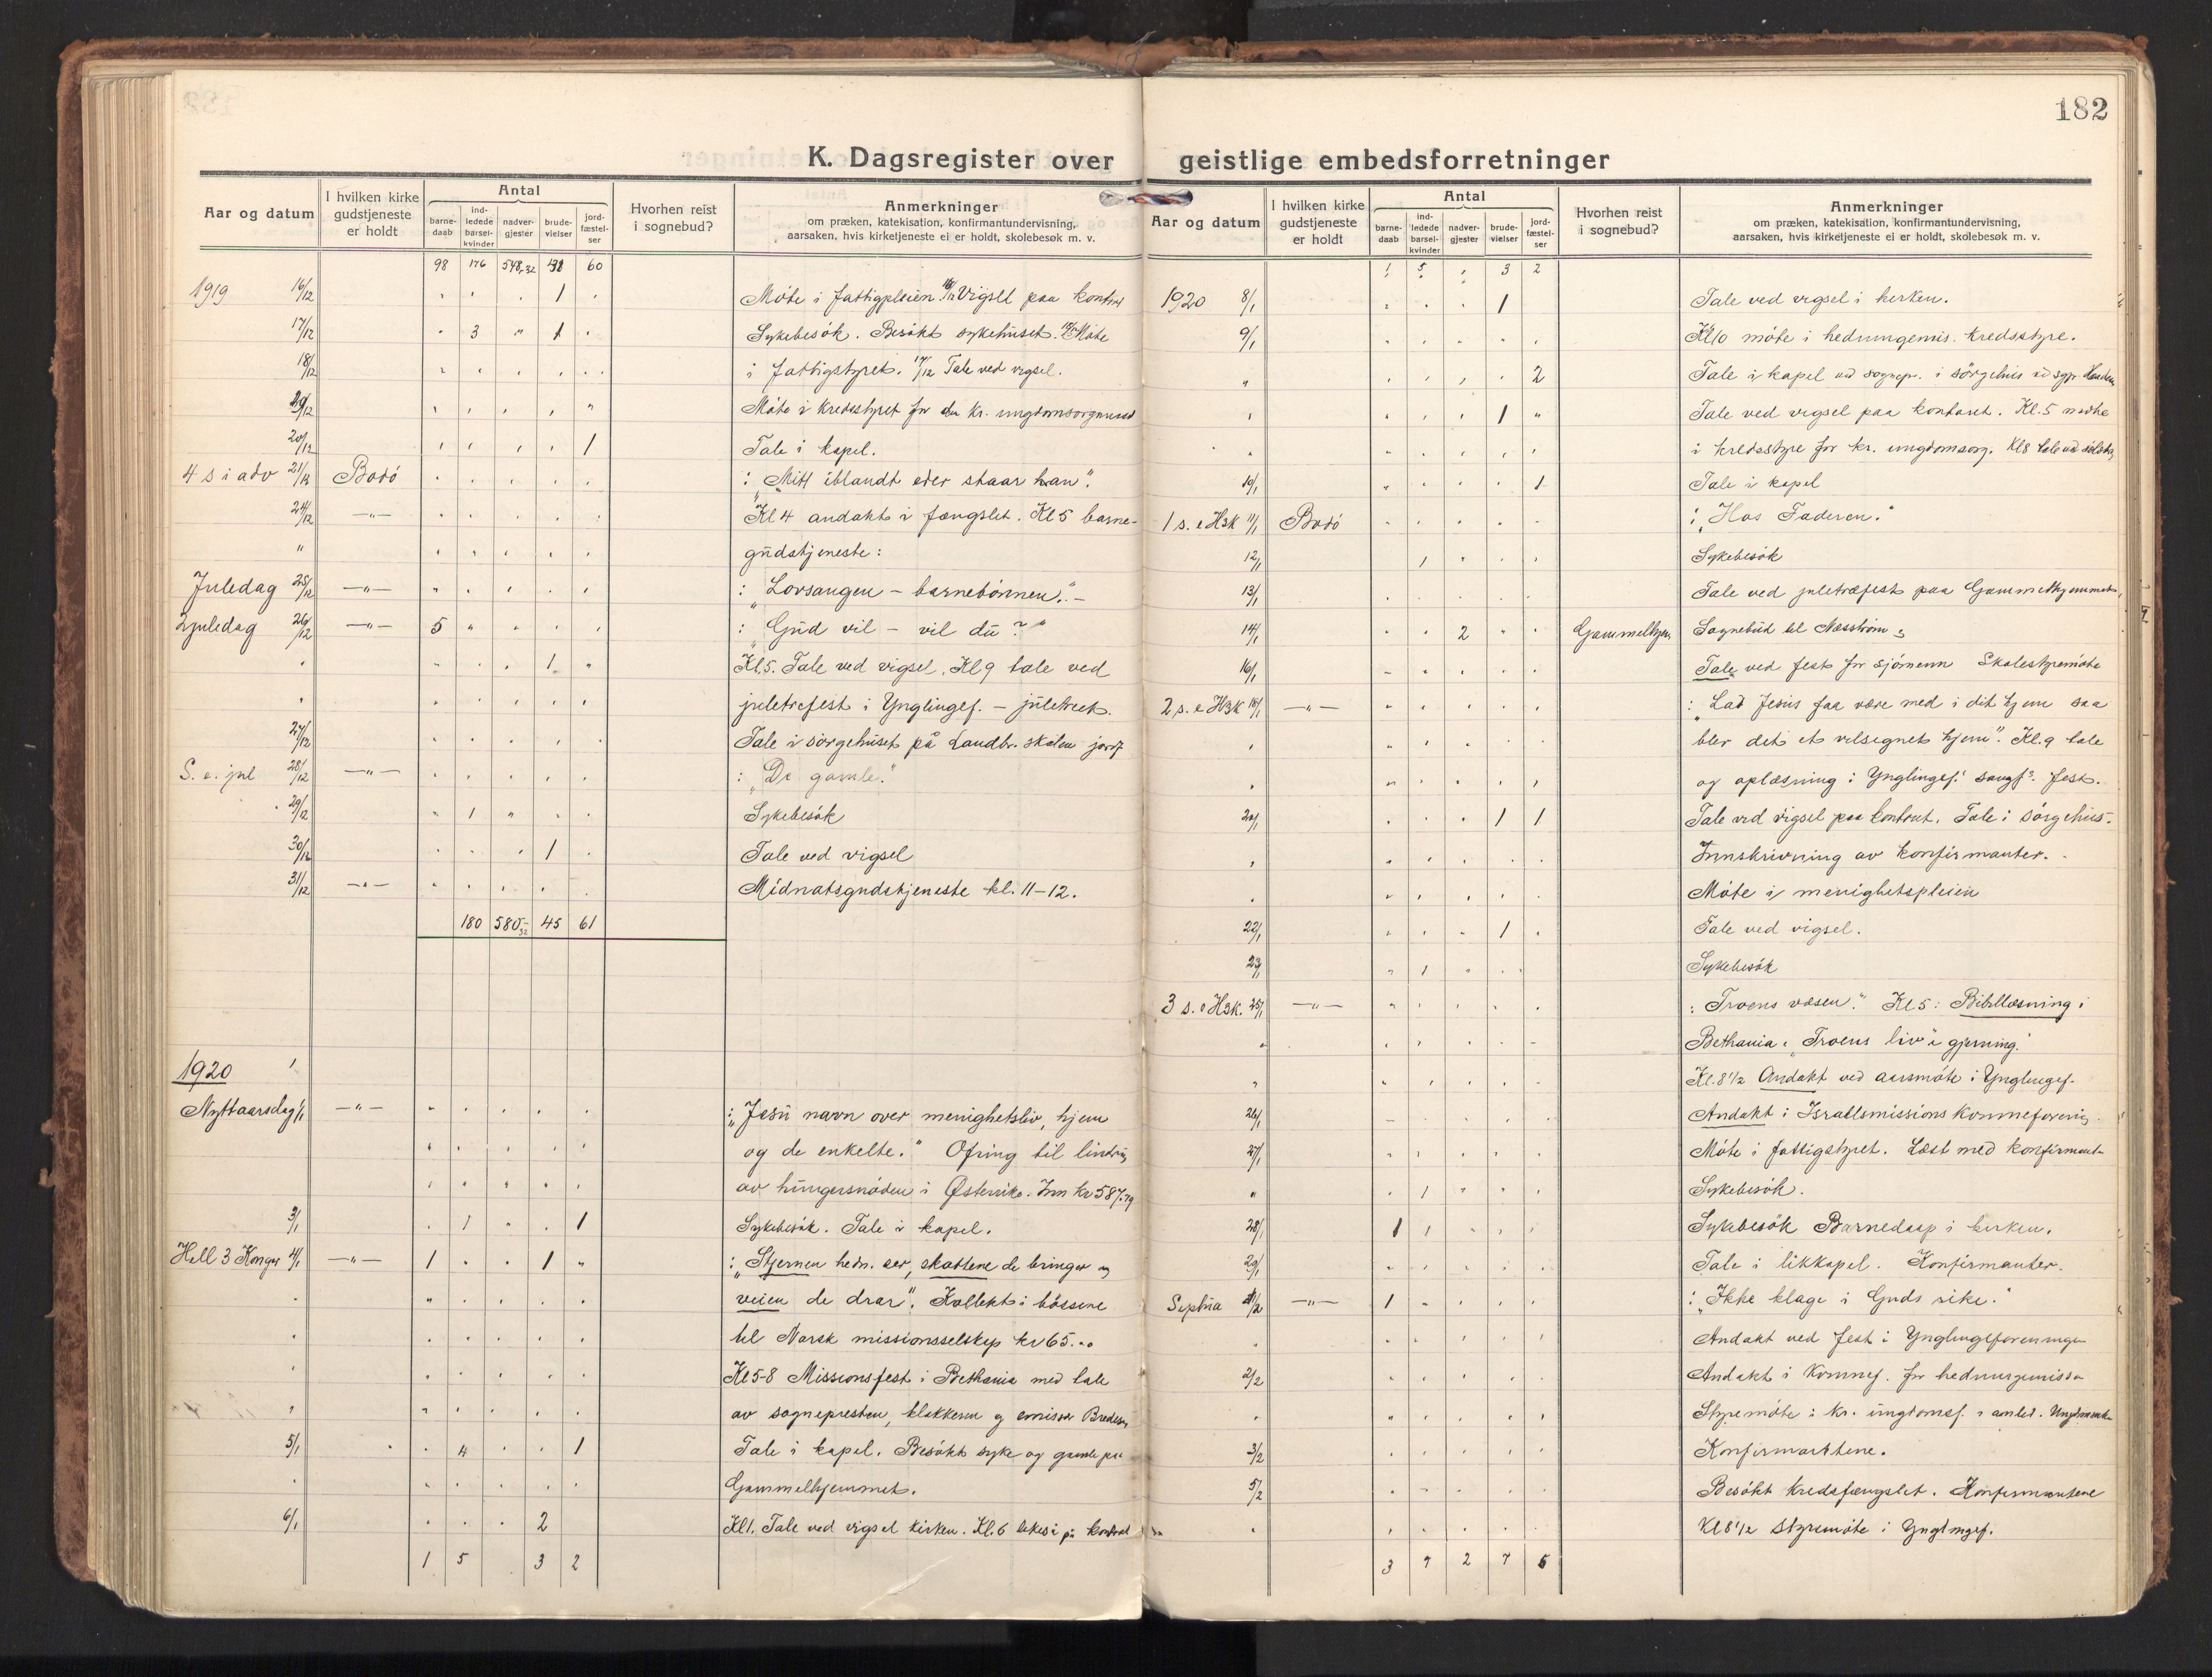 182
K. Dagsregister over geistlige embedsforretninger
Aar og datum
I hvilken kirke gudstjeneste er holdt
Antal
barne-daab
ind-ledede barsel-kvinder
nadver-gjester
brude-vielser
jord-fæstel-ser
Hvorhen reist i sognebud?
Anmerkninger
om præken, katekisation, konfirmantundervisning,
aarsaken, hvis kirketjeneste ei er holdt, skolebesøk m. v.
98 176 548,32 60
1919 16/12 1 Møte i fattigpleien Vigsel paa kontor
17/12 3 1 Sykebesøk. Besøkt sykehuset. Møte
18/12 i fattigstyret. 17/12 Tale ved vigsel.
Møte i kredsstyret for
20/12 1 Tale i kapel.
4 s i adv 21/12 Bodø : "Mitt iblandt eder staar han".
24/12 —"— Kl 4 andakt i fængslet. Kl 5 barne-
" gudstjeneste:
Juledag 25/12 —"— : "Lovsangen – barnebønnen". –
2 juledag 26/12 —"— 5 : "Gud vil – vil du?"
1 Kl. 5. Tale ved vigsel. Kl 9 tale ved
juletrefest i Ynglingef. –
27/12 Tale i sørgehuset på Landbr. skolen jordf
S. e. jul 28/12 —"— : "De gamle."
29/12 1 Sykebesøk
30/12 1 Tale ved vigsel
31/12 —"— Midnatsgudstjeneste kl. 11–12.
180 580-32 45 61
1920
Nyttaarsdag 1/1 —"— : "Jesu navn over menighetsliv, hjem
og de enkelte." Ofring til lindring
av hungersnøden i Østerrike. Inn kr 587.79
3/1 1 1 Sykebesøk. Tale i kapel.
Hell 3 Konger 4/1 —"— 1 1 : "Stjernen hedn. ser, skattene de bringer og
veien de drar". Kollekt i bøssene
til Norsk missionsselskap kr 65.
Kl 5-8 Missionsfest i Bethania med tale
av sognepresten, klokkeren og emissær
5/1 4 1 Tale i kapel. Besøkt syke og gamle paa
Gammelhjemmet.
6/1 2 Kl 1. Tale ved vigsel kirken. Kl. 6 på kontoret
1 5 3 2
Aar og datum
I hvilken kirke gudstjeneste er holdt
Antal
barne-daab
ind-ledede barsel-kvinder
nadver-gjester
brude-vielser
jord-fæstel-ser
Hvorhen reist i sognebud?
Anmerkninger
om præken, katekisation, konfirmantundervisning,
aarsaken, hvis kirketjeneste ei er holdt, skolebesøk m. v.
1 5 3 2
1920 8/1 1 Tale ved vigsel i kirken.
9/1 Kl 10 møte i hedningemis. kredsstyre.
" 2 Tale i kapel ved sognepr. i sørgehus
1 Tale ved vigsel paa kontoret. Kl. 5 møte
i kredsstyre for kr. ungdomsorg. Kl 8 tale ved
10/1 1 Tale i kapel
1 s. e H3k 11/1 Bodø : "Hos Faderen."
12/1 1 Sykebesøk
13/1 Tale ved juletræfest paa Gammelhjemmet
14/1 2 Gammelhjem. Sognebud til Næsström
16/1 Tale ved fest for sjømenn Skolestyremøte
2 s. e H3k 18/1 —"— : "Lad Jesus faa være med i dit hjem saa
blir det et velsignet hjem". Kl. 9 tale
og oplæsning i Ynglingef. sangf. fest.
20/1 1 1 Tale ved vigsel paa kontoret. Tale i sørgehus.
Innskrivning av konfirmanter.
Møte i menighetspleien
22/1 1 Tale ved vigsel.
23/1 1 Sykebesøk
3 s. e H3k. 25/1 —"— : "Troens væsen". Kl 5: Bibellæsning i
Bethania: "Troens liv i gjerning."
Kl. 8 1/2 Andakt ved aarsmøte i Ynglingef.
26/1 Andakt i Israelsmissions kvinneforening
27/1 Møte i fattigstyret. Læst med konfirmant-
" 1 Sykebesøk.
28/1 1 1 Sykebesøk Barnedaap i kirken.
29/1 Tale i likkapel. Konfirmanter.
Septua 1/2 —"— 1 : "Ikke klage i Guds rike."
Andakt ved fest i Ynglingeforeningen
2/2 Andakt i Kvinnef. for hedningemissa
Styremøte i kr. ungdomsf.
3/2 Konfirmantene.
5/2 Besøkt Kredsfængslet. Konfirmantene
Kl 8 1/2 Styremøte i Ynglingef.
3 9 2 7 6